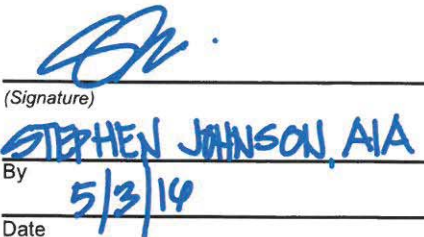 (Signature)
STEPHEN JOHNSON, AIA
By
5/3/16
Date